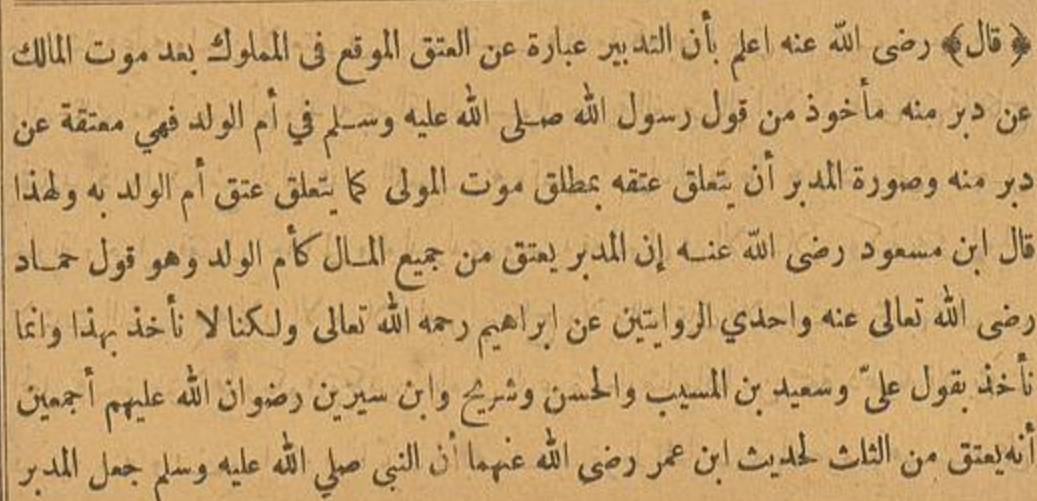 ﴿ قال ﴾ رضى الله عنه اعلم بأن التدبير عبارة عن العتق الموقع فى المملوك بعد موت المالك
عن دبر منه مأخوذ من قول رسول الله صلى الله عليه وسلم في أم الولد فهي معتقة عن
دبر منه وصورة المدبر أن يتعلق عتقه بمطلق موت المولى كما يتعلق عتق أم الولد به ولهذا
قال ابن مسعود رضى الله عنه إن المدبر يعتق من جميع المال كأم الولد وهو قول حماد
رضى الله تعالى عنه واحدي الروايتين عن ابراهيم رحمه الله تعالى ولكنا لا نأخذ بهذا وانما
نأخذ بقول علىّ وسعيد بن المسيب والحسن وشريح وابن سيرين رضوان الله عليهم أجمعين
أنه يعتق من الثلث لحديث ابن عمر رضى الله عنهما أن النبى صلي الله عليه وسلم جعل المدبر